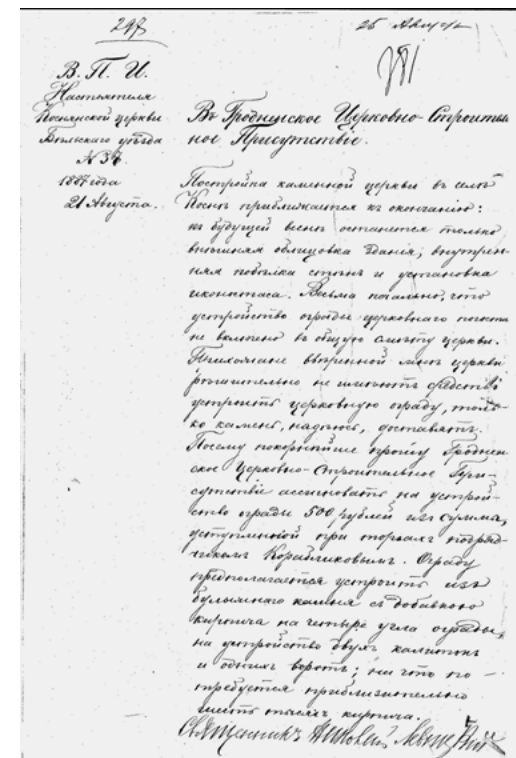 25 Августа
В. П. И.
Настоятеля
Коснянской церкви
Бѣльскаго уѣзда
№ 34
1867 года
21 Августа.
Въ Гродненское Церковно-Строитель
ное Присутствіе.
Постройка каменной церкви въ селѣ
приближается къ окончанію:
къ будущей веснѣ останется только
внѣшняя облицовка зданія, внутрен-
няя побѣлка стѣнъ и установка
иконостаса. Весьма печально, что
устройство ограды церковнаго погоста
не включено въ общую смѣту церкви.
Прихожане ввѣренной мнѣ церкви
рѣшительно не имѣютъ средствъ
устроить церковную ограду, толь-
ко камень, надѣюсь, доставятъ.
Посему покорнѣйше прошу Гроднен
ское Церковно-Строительное При-
сутствіе ассигновать на устрой-
ство ограды 500 рублей изъ суммы,
уступленной при торгахъ подряд-
чикомъ Корабликовымъ. Ограду
предполагается устроить изъ
булыжнаго камня съ добавкою
кирпича на четыре угла ограды,
на устройство двухъ калитокъ
и однихъ воротъ; на что по-
требуется приблизительно
шесть тысячъ кирпича.
Священникъ